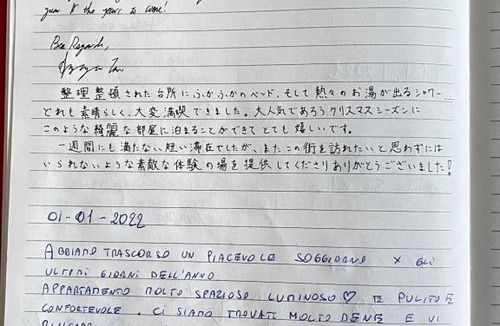 year & the years to come!
Best Regards,
整理整頓された台所にふかふかのベッド、そして熱々のお湯が出るシャワー
どれも素晴らしく、大変満喫できました。大人気であろうクリスマスシーズンに
このような綺麗な部屋に泊まることができてとても嬉しいです。
一週間にも満たない短い滞在でしたが、またこの街を訪れたいと思わずには
いられないような素敵な体験の場を提供してくださりありがとうございました!
01-01-2022
ABBIAMO TRASCORSO UN PIACEVOLE SOGGIORNO X GLI
ULTIMI GIORNI DELL'ANNO
APPARTAMENTO MOLTO SPAZIOSO LUMINOSO ♡ E PULITO E
CONFORTEVOLE. CI SIAMO TROVATI MOLTO BENE E VI